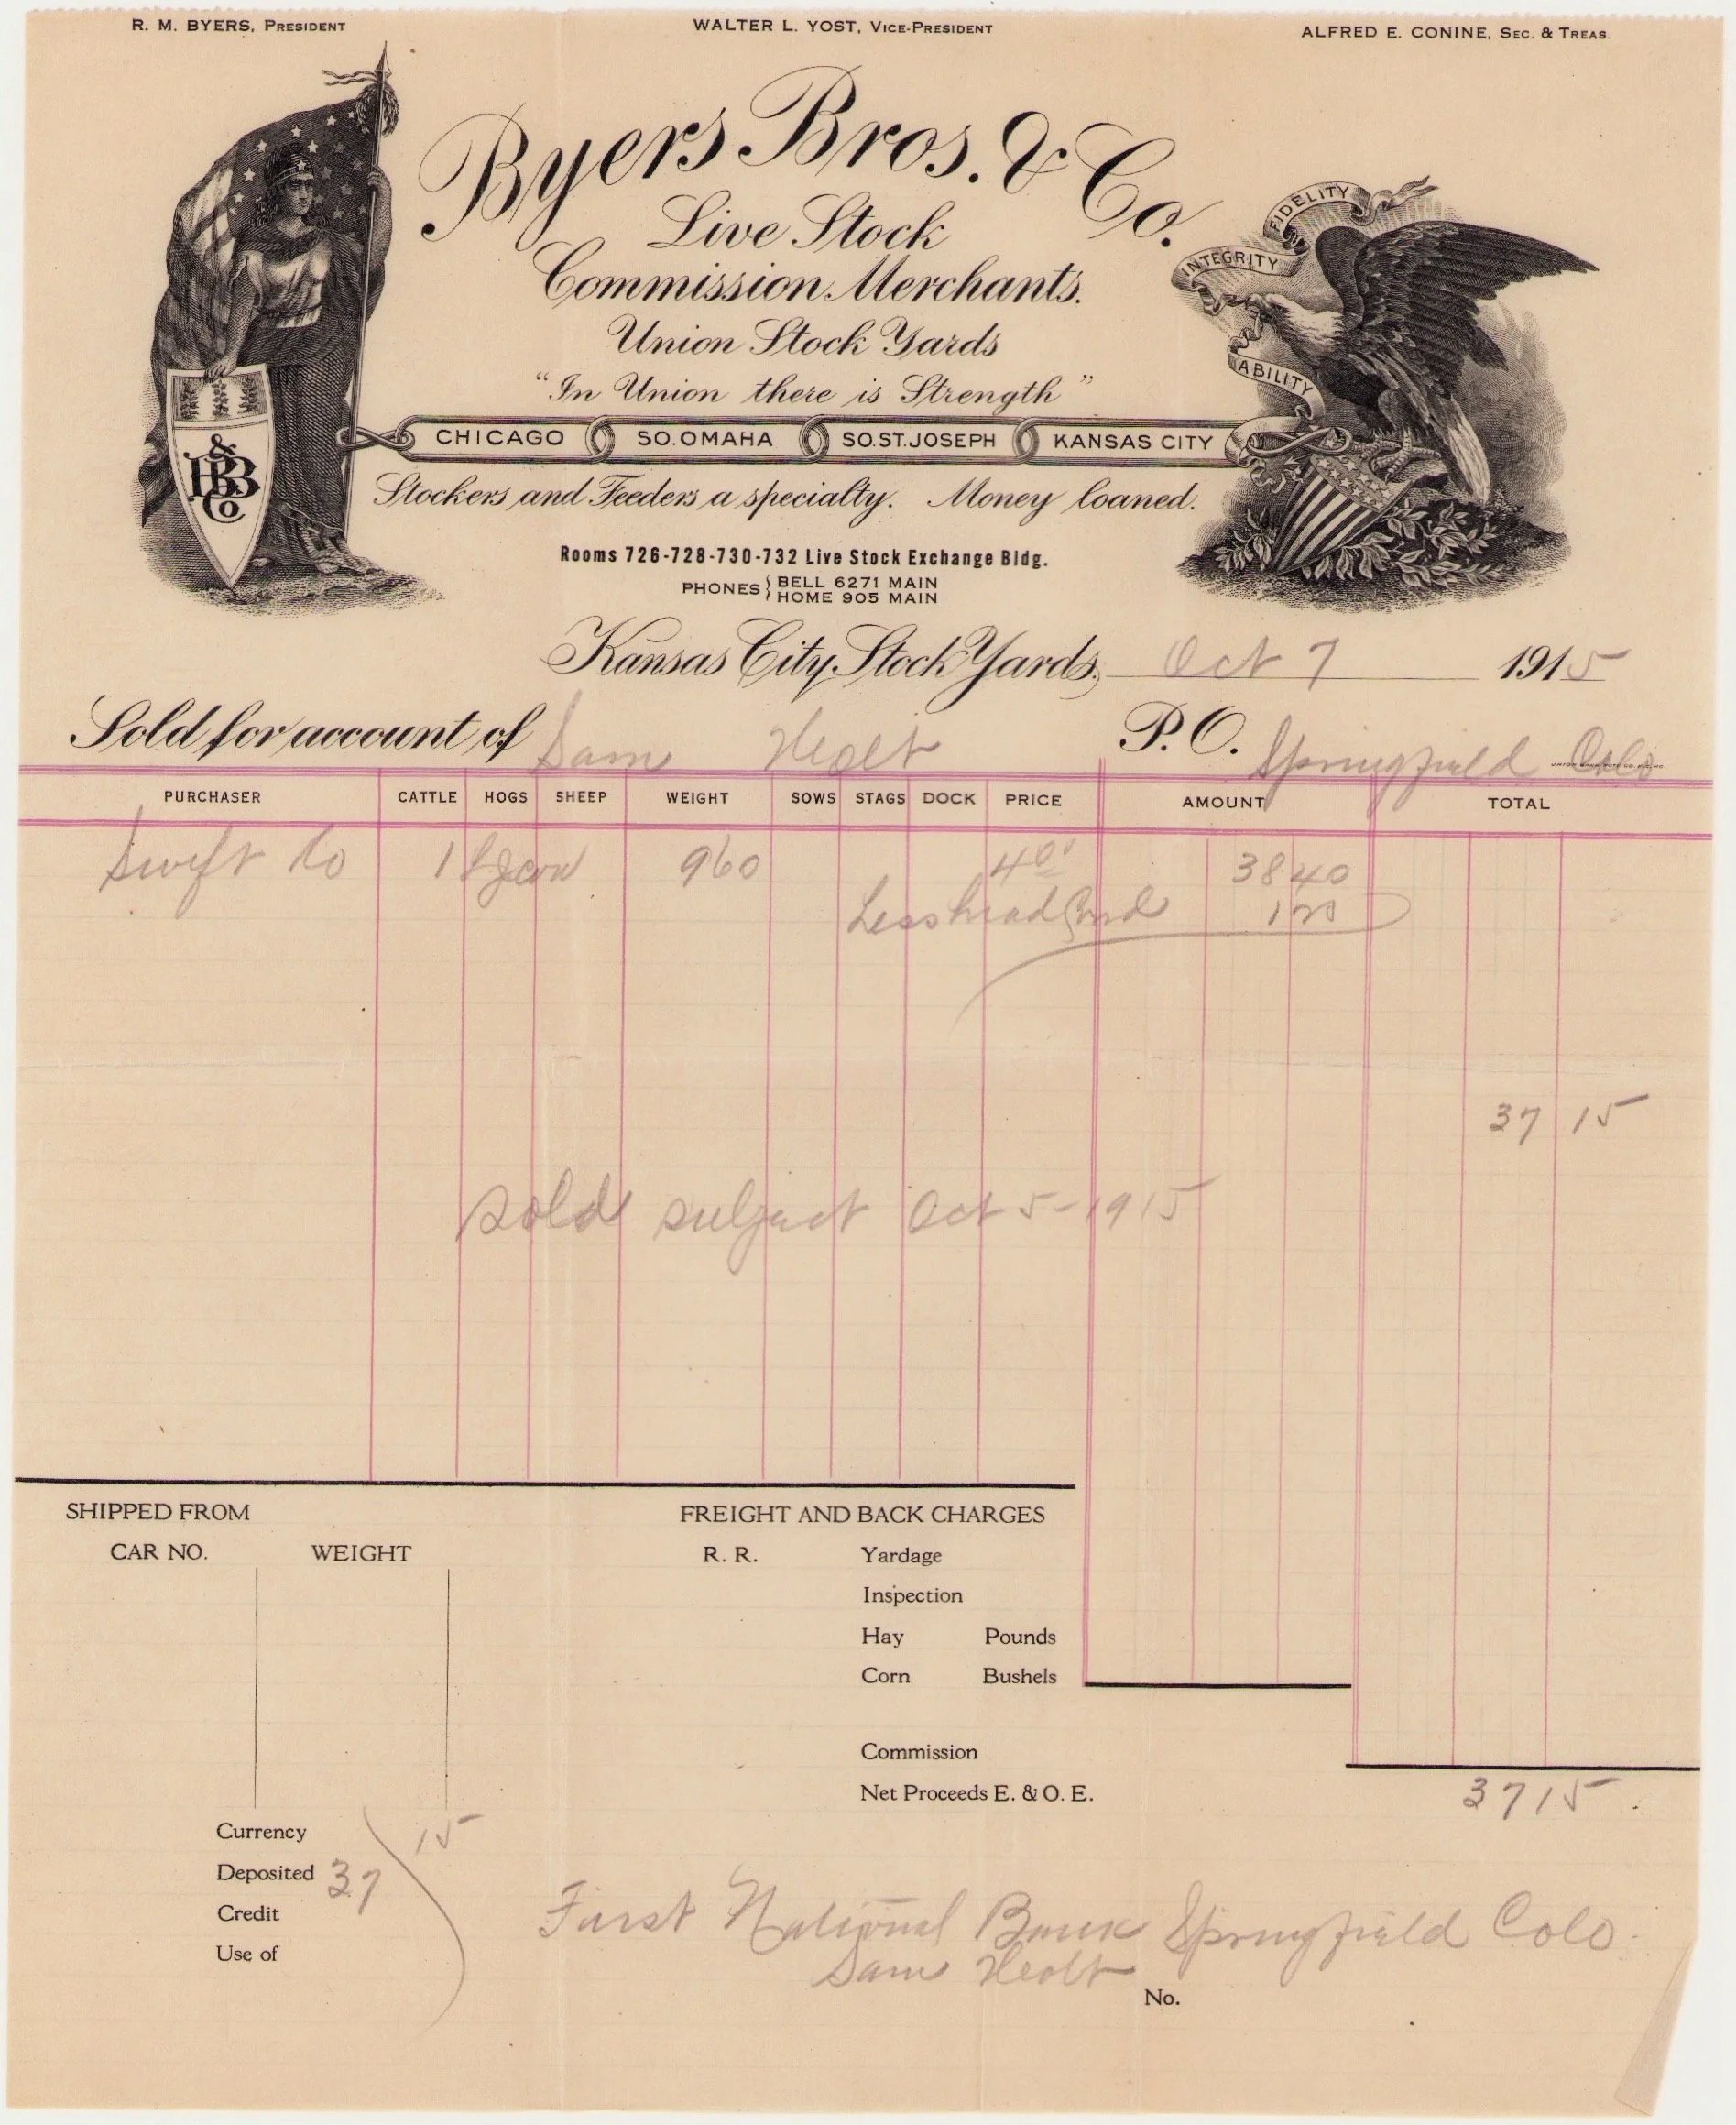 R. M. BYERS, PRESIDENT WALTER L. YOST, VICE-PRESIDENT ALFRED E. CONINE, SEC. & TREAS.
Byers Bros. & Co.
Live Stock
Commission Merchants.
Union Stock Yards
"In Union there is Strength"
FIDELITY
INTEGRITY
ABILITY
CHICAGO SO. OMAHA SO. ST. JOSEPH KANSAS CITY
BB & Co
Stockers and Feeders a specialty. Money loaned.
Rooms 726-728-730-732 Live Stock Exchange Bldg.
PHONES BELL 6271 MAIN
HOME 905 MAIN
Kansas City Stock Yards, Oct 7 1915
Sold for account of Sam Holt P.O. Springfield Colo
PURCHASER CATTLE HOGS SHEEP WEIGHT SOWS STAGS DOCK PRICE AMOUNT TOTAL
Swift Co 1 cow 960 4 00 38 40
Less head
37 15
Sold subject Oct 5-1915
SHIPPED FROM FREIGHT AND BACK CHARGES
CAR NO. WEIGHT R. R. Yardage
Inspection
Hay Pounds
Corn Bushels
Commission
Net Proceeds E. & O. E. 37 15
Currency
Deposited 37 15
Credit
Use of
First National Bank Springfield Colo.
Sam Holt
No.